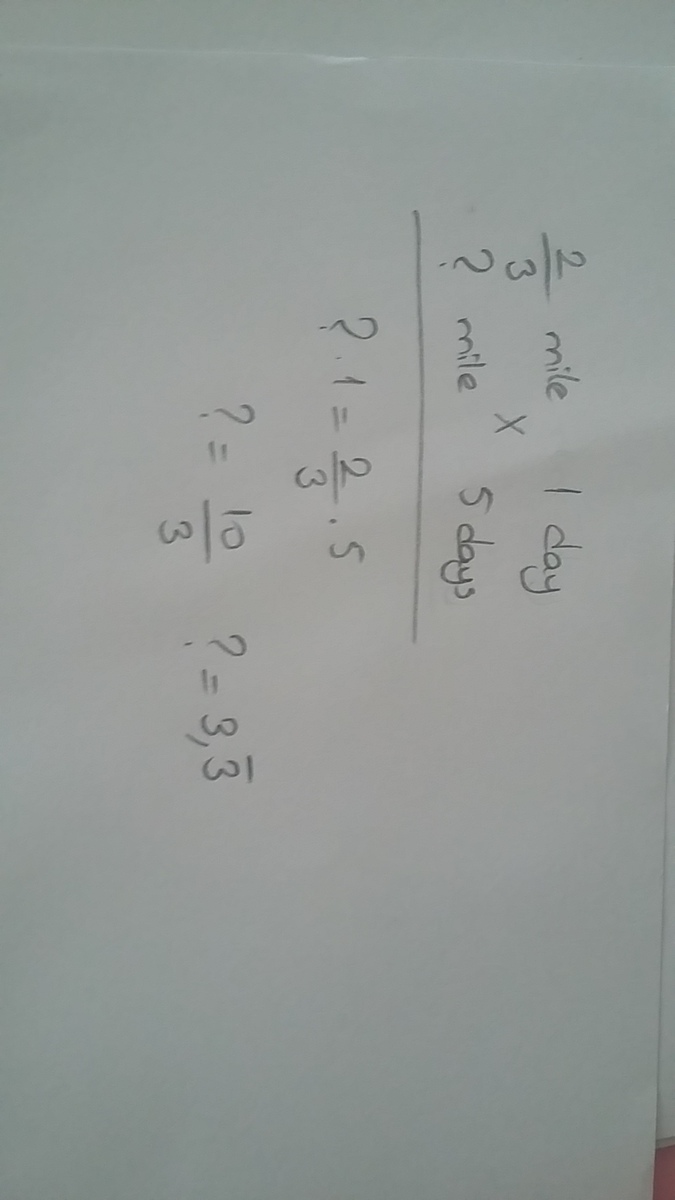 2/3 mile 1 day
x
? mile 5 days
? . 1 = 2/3 . 5
? = 10/3 ? = 3,3̅